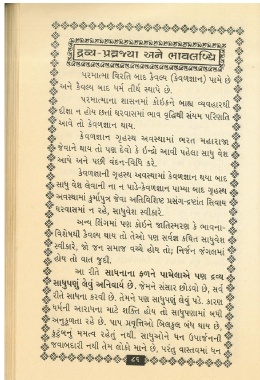 દ્રવ્ય-પ્રવ્રજ્યા અને ભાવલબ્ધિ
પરમાત્મા વિરતિ બાદ કૈવલ્ય (કેવળજ્ઞાન) પામે છે
અને કૈવલ્ય બાદ ધર્મ તીર્થ સ્થાપે છે.
પરમાત્માના શાસનમાં કોઇકને બાહ્ય વ્યવહારથી
દીક્ષા ન હોય છતાં ઘરવાસમાં ભાવ વૃદ્ધિથી સંયમ પરિણતિ
આવે તો કેવળજ્ઞાન થાય.
કેવળજ્ઞાન ગૃહસ્થ અવસ્થામાં ભરત મહારાજા
જેવાને થાય તો પણ દેવો કે ઇન્દ્રો આવી પહેલા સાધુ વેશ
આપે અને પછી વંદન-વિધિ કરે.
કેવળજ્ઞાની ગૃહસ્થ અવસ્થામાં કેવળજ્ઞાન થયા બાદ
સાધુ વેશ લેવાની ના ન પાડે-કેવળજ્ઞાન પામ્યા બાદ ગૃહસ્થ
અવસ્થામાં કુર્માપુત્ર જેવા અતિવિશિષ્ટ પ્રસંગ-દ્રષ્ટાંત સિવાય
ઘરવાસમાં ન રહે, સાધુવેશ સ્વીકારે.
અન્ય લિંગમાં પણ કોઇકને જાતિસ્મરણ કે ભાવના-
વિશેષથી કૈવલ્ય થાય તો તેઓ પણ સર્વજ્ઞ કથિત સાધુવેશ
સ્વીકારે, જો જન સમાજ વચ્ચે હોય તો; નિર્જન જંગલમાં
હોય તો વાત જુદી.
આ રીતે સાધનાના ફળને પામેલાએ પણ દ્રવ્ય
સાધુપણું લેવું અનિવાર્ય છે. જેમને સંસાર છોડવો છે, સર્વ
રીતે સાધના કરવી છે. તેમને પણ સાધુપણું લેવું પડે. કારણ
ધર્મની આરાધના માટે શક્તિ હોય તો સાધુપણામાં બધી
અનુકૂળતા રહે છે. પાપ પ્રવૃત્તિઓ બિલકુલ બંધ થાય છે,
કુટુંબનું મમત્વ રહેતું નથી. સાધુઓને ધન ઉપાર્જનની
જવાબદારી નથી તેમ લોકો માને છે. પરંતુ વાસ્તવમાં ધન